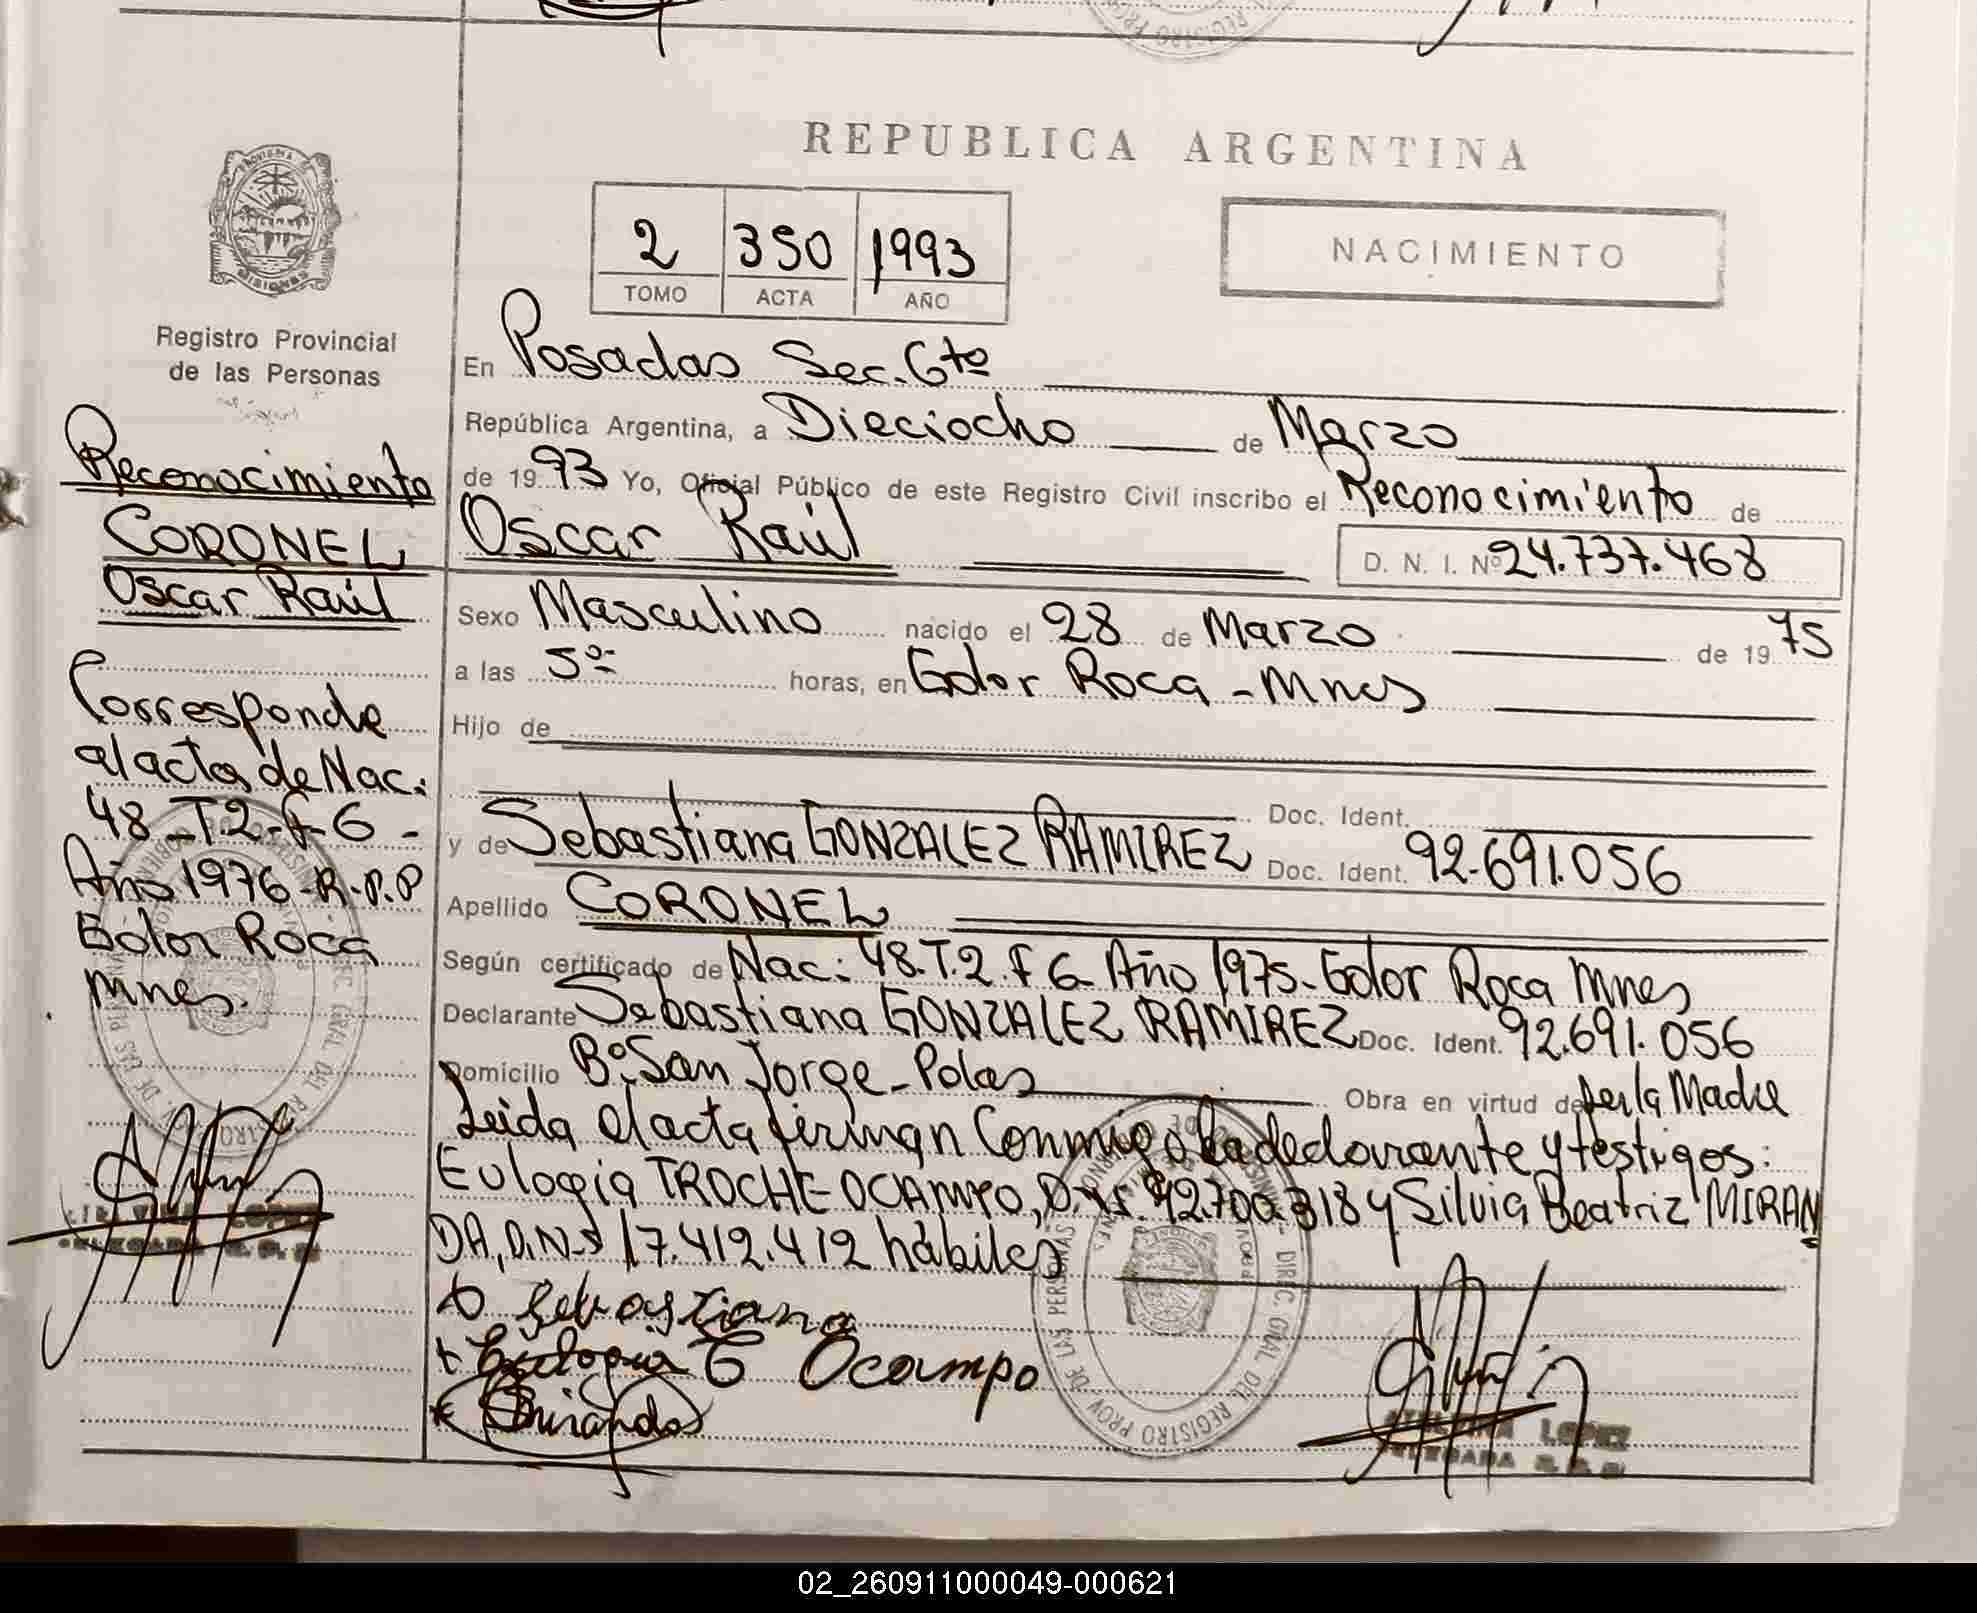 REPUBLICA ARGENTINA
2 350 1993
TOMO ACTA AÑO
NACIMIENTO
Registro Provincial
de las Personas
Reconocimiento
CORONEL
Oscar Raúl
Corresponde
al acta de Nac:
48-T.2-f-6-
Año 1976-R.P.P
Gdor Roca
Mnes.
En Posadas Sec. 6ta
República Argentina, a Dieciocho de Marzo
de 1993 Yo, Oficial Público de este Registro Civil inscribo el Reconocimiento de
Oscar Raúl D. N. I. Nº 24.737.468
Sexo Masculino nacido el 28 de Marzo de 1975
a las 5º horas, en Gdor Roca - Mnes
Hijo de
Doc. Ident.
y de Sebastiana GONZALEZ RAMIREZ Doc. Ident. 92.691.056
Apellido CORONEL
Según certificado de Nac: 48.T.2.f 6 Año 1975-Gdor Roca Mnes
Declarante Sebastiana GONZALEZ RAMIREZ Doc. Ident. 92.691.056
Domicilio Bº San Jorge-Pdas Obra en virtud de ser la Madre
Leida el acta firman Conmigo la declarante y testigos:
Eulogia TROCHE OCAMPO, D.N.I. 92.700.318 y Silvia Beatriz MIRAN
DA, D.N.I 17.412.412 hábiles
Sebastiana
Eulogia T Ocampo
Miranda
LOPEZ
DELEGADA R. P. P.
02_260911000049-000621